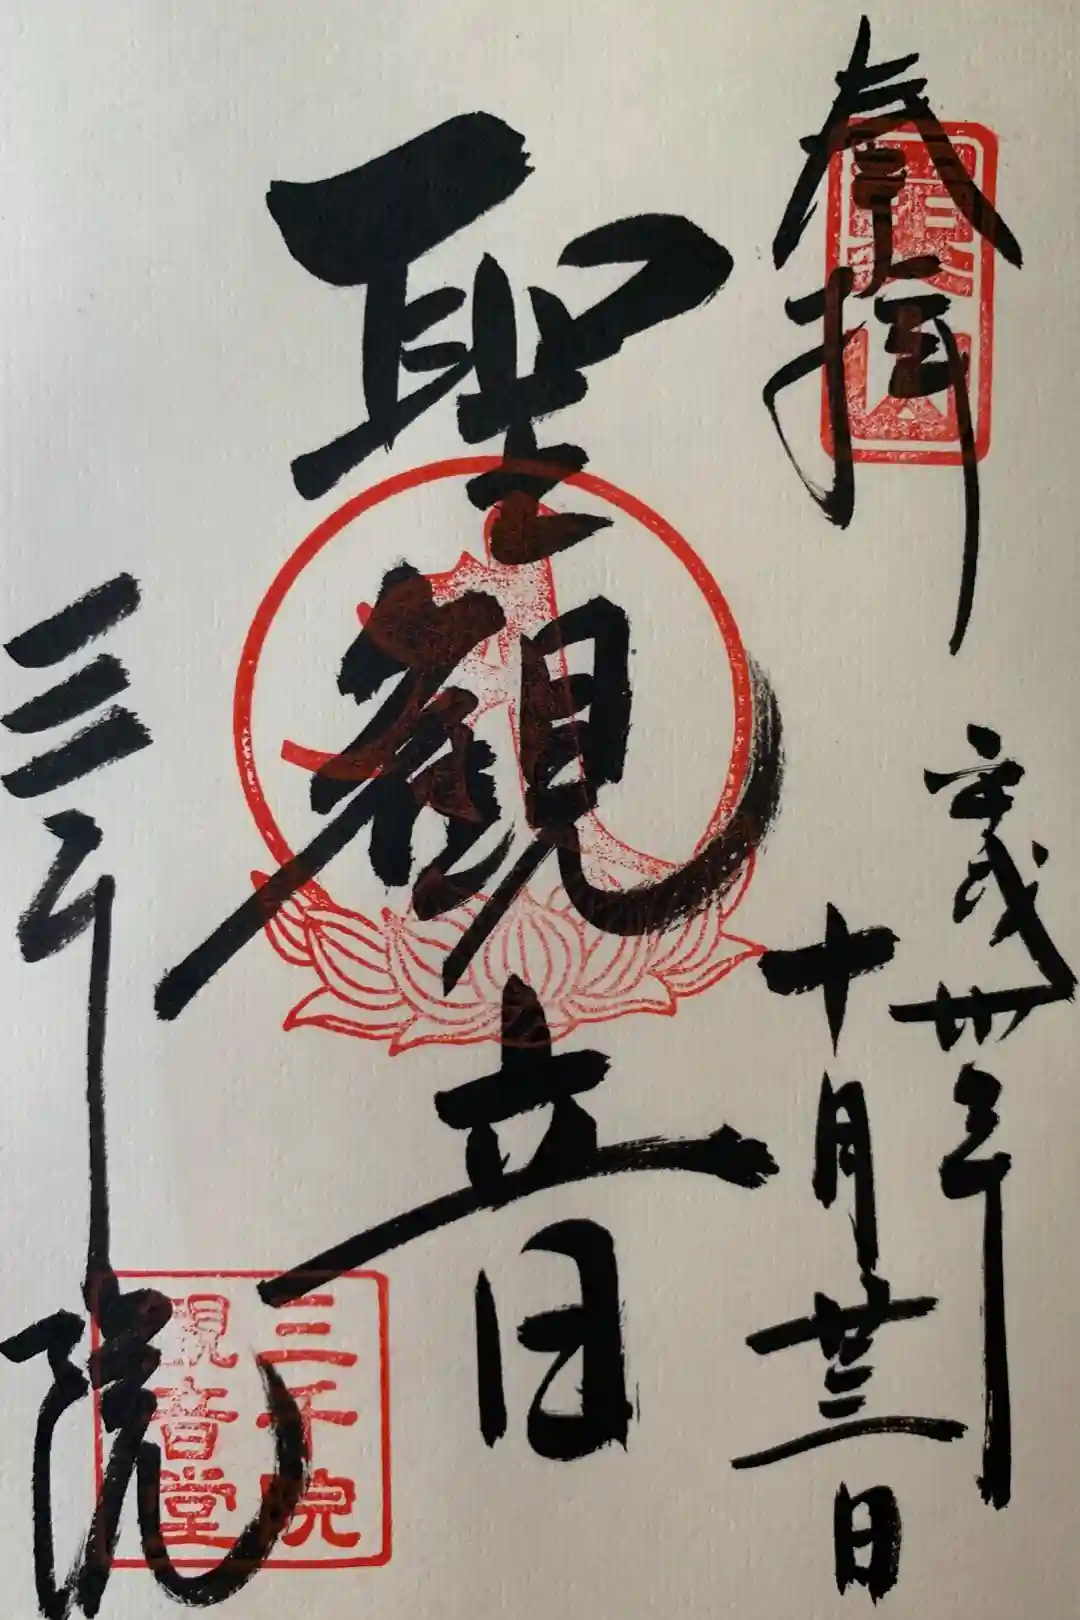 奉拝
平成卅年
十月廿三日
聖観音
三千院
三千院
観音堂